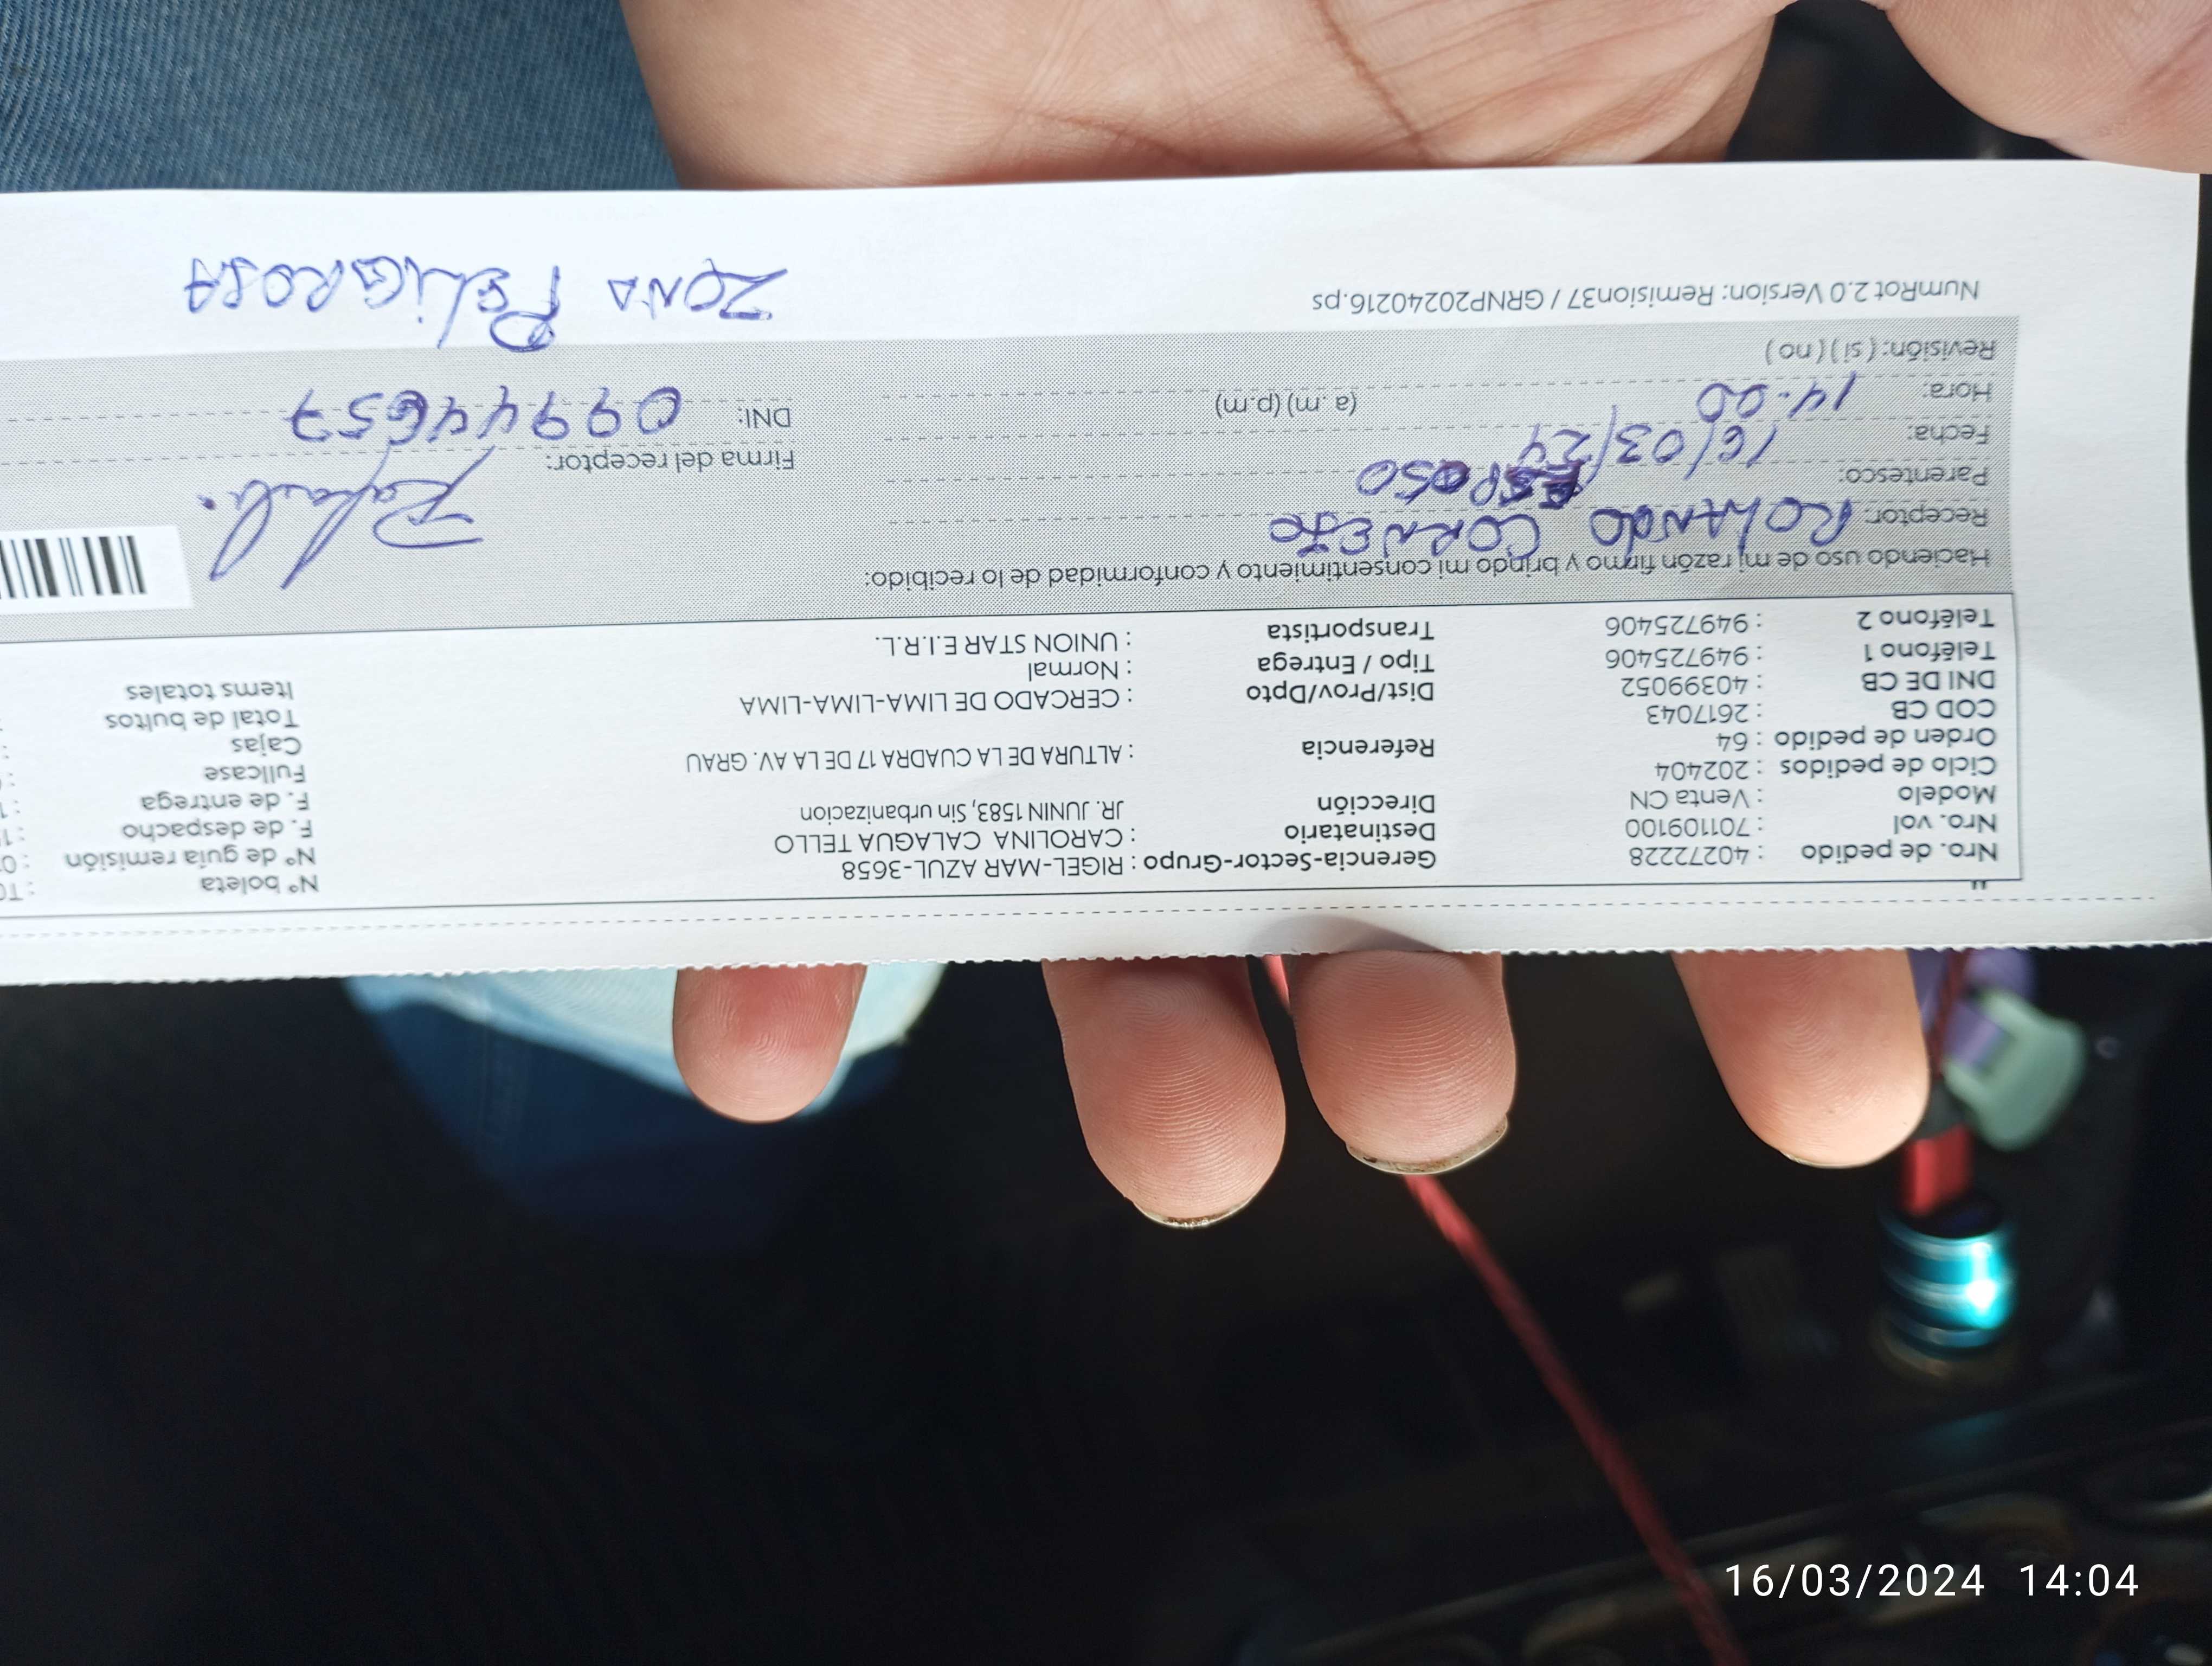 Nro. de pedido : 40272228 Gerencia-Sector-Grupo : RIGEL-MAR AZUL-3658 N° boleta
Nro. vol : 701109100 Destinatario : CAROLINA CALAGUA TELLO N° de guía remisión
Modelo : Venta CN Dirección JR. JUNIN 1583, Sin urbanizacion F. de despacho
Ciclo de pedidos : 202404 F. de entrega
Orden de pedido : 64 Referencia : ALTURA DE LA CUADRA 17 DE LA AV. GRAU Fullcase
COD CB : 2617043 Cajas
DNI DE CB : 40399052 Dist/Prov/Dpto : CERCADO DE LIMA-LIMA-LIMA Total de bultos
Teléfono 1 : 949725406 Tipo / Entrega : Normal Items totales
Teléfono 2 : 949725406 Transportista : UNION STAR E.I.R.L.
Haciendo uso de mi razón firmo y brindo mi consentimiento y conformidad de lo recibido:
Receptor: ROLANDO CORNEJO
Parentesco: ESPOSO Firma del receptor:
Fecha: 16/03/24
Hora: 14:00 (a. m) (p.m) DNI: 09944657
Revisión: ( si ) ( no )
NumRot 2.0 Version: Remision37 / GRNP20240216.ps
ZONA PELIGROSA
16/03/2024 14:04